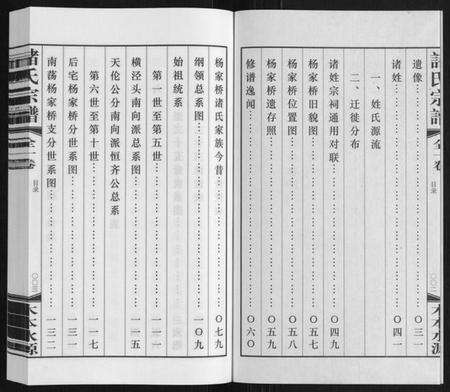 諸氏宗譜
全一卷
目录
木本水源
遗像……〇三一
诸姓……〇四一
一、姓氏源流
二、迁徙分布
诸姓宗祠通用对联……〇四九
杨家桥旧貌图……〇五七
杨家桥位置图……〇五八
杨家桥遗存照……〇五九
修谱逸闻……〇六〇
杨家桥诸氏家族今昔……〇七九
纲领总系图……一〇九
始祖统系
第一世至第五世……一一一
横泾头南向派总系图……一一五
天伦公分南向派恒齐公总系
第六世至第十世……一一七
后宅杨家桥分世系图……一三一
南荡杨家桥支分世系图……一三二
諸氏宗譜
全一卷
目录
木本水源